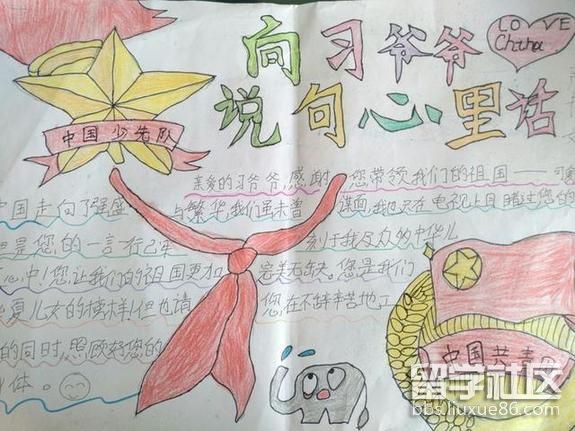 向习爷爷
说句心里话
LOVE
China
中国少先队
亲爱的习爷爷,感谢您带领我们的祖国——可爱
中国走向了强盛与繁华,我们虽未曾谋面,我也只在电视上目睹过您的
但是您的一言一行已深刻于我及众多中华儿
心中!您让我们的祖国更加完美无缺。您是我们
华夏儿女的榜样!但也请您在不辞辛苦地工
的同时,照顾好您的
体。
中国共青
留学社区
bbs.liuxue86.com